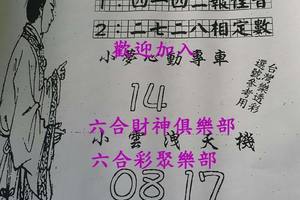 1：四一四二報佳音
2：二七二八相定數
歡迎加入
小夢心動專車
台灣樂透彩
選號參考用
14
六合財神俱樂部
小雲洩天機
六合彩聚樂部
08 17